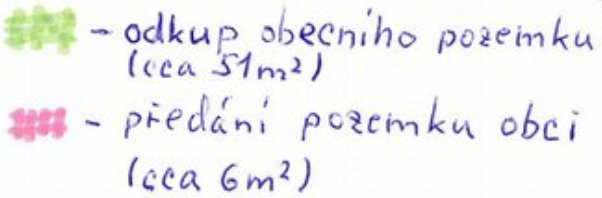 - odkup obecního pozemku
(cca 51m²)
- předání pozemku obci
(cca 6m²)